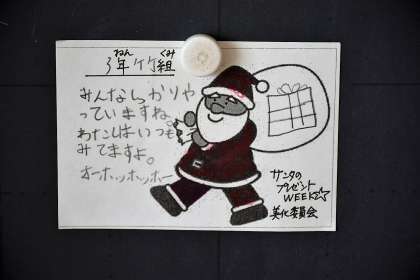 ねん くみ
3年竹組
みんなしっかりや
っていますね。
わたしはいつも
みてますよ。
オーホッホッホー
サンタの
プレゼント
WEEK🎄
美化委員会